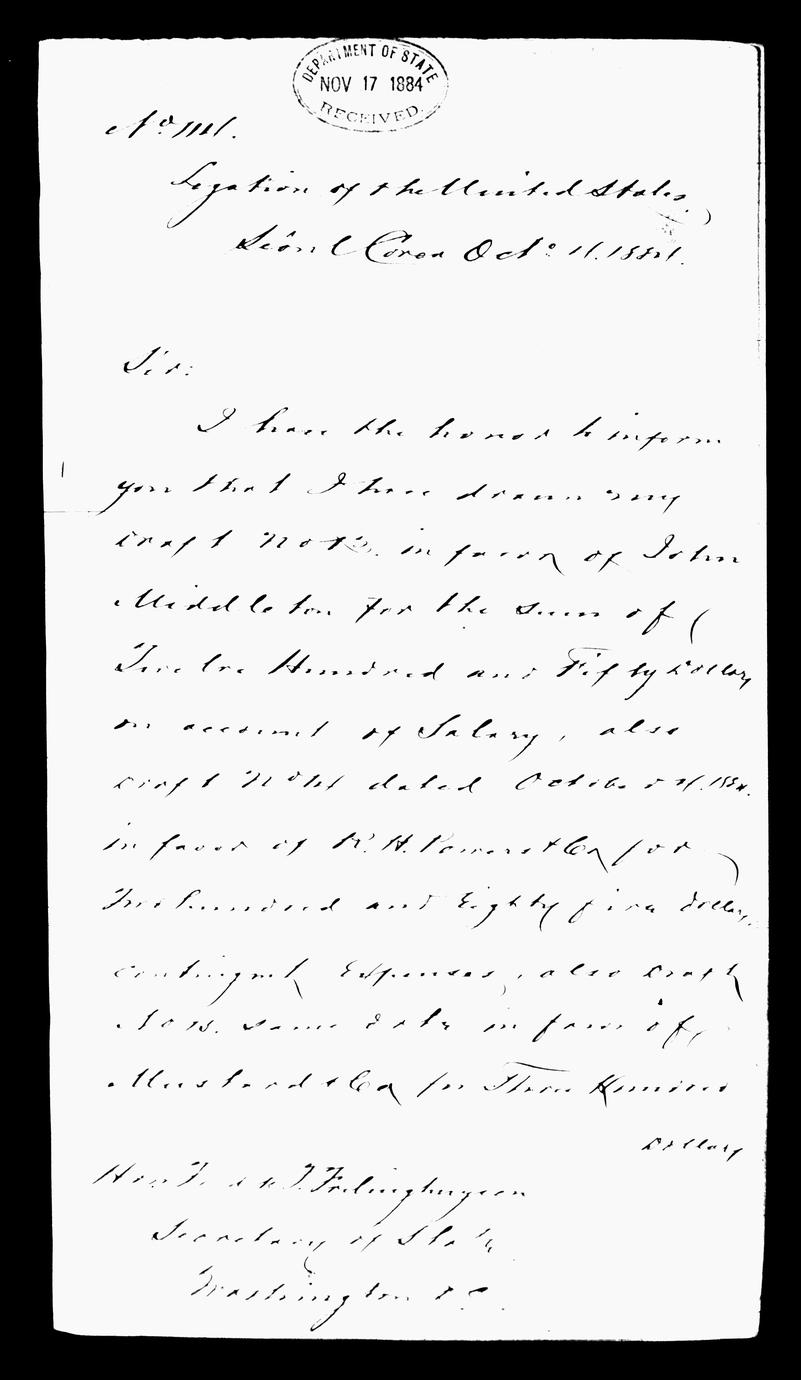 DEPARTMENT OF STATE
NOV 17 1884
RECEIVED.
Legation of the United States,
Seoul Corea Octo. 1884.
Sir:
I have the honor to inform
you that I have drawn my
draft No in favor of John
Middleton for the sum of
Twelve Hundred and Fifty Dollars
on account of Salary, also
draft No dated October 1884.
in favor of R. H. Powers & Co for
Two hundred and Eighty five dollars,
contingent Expenses, also draft
No 15. same date in favor of
Mustard & Co for Three Hundred
Dollars
Hon Fredk T. Frelinghuysen
Secretary of State
Washington D C.